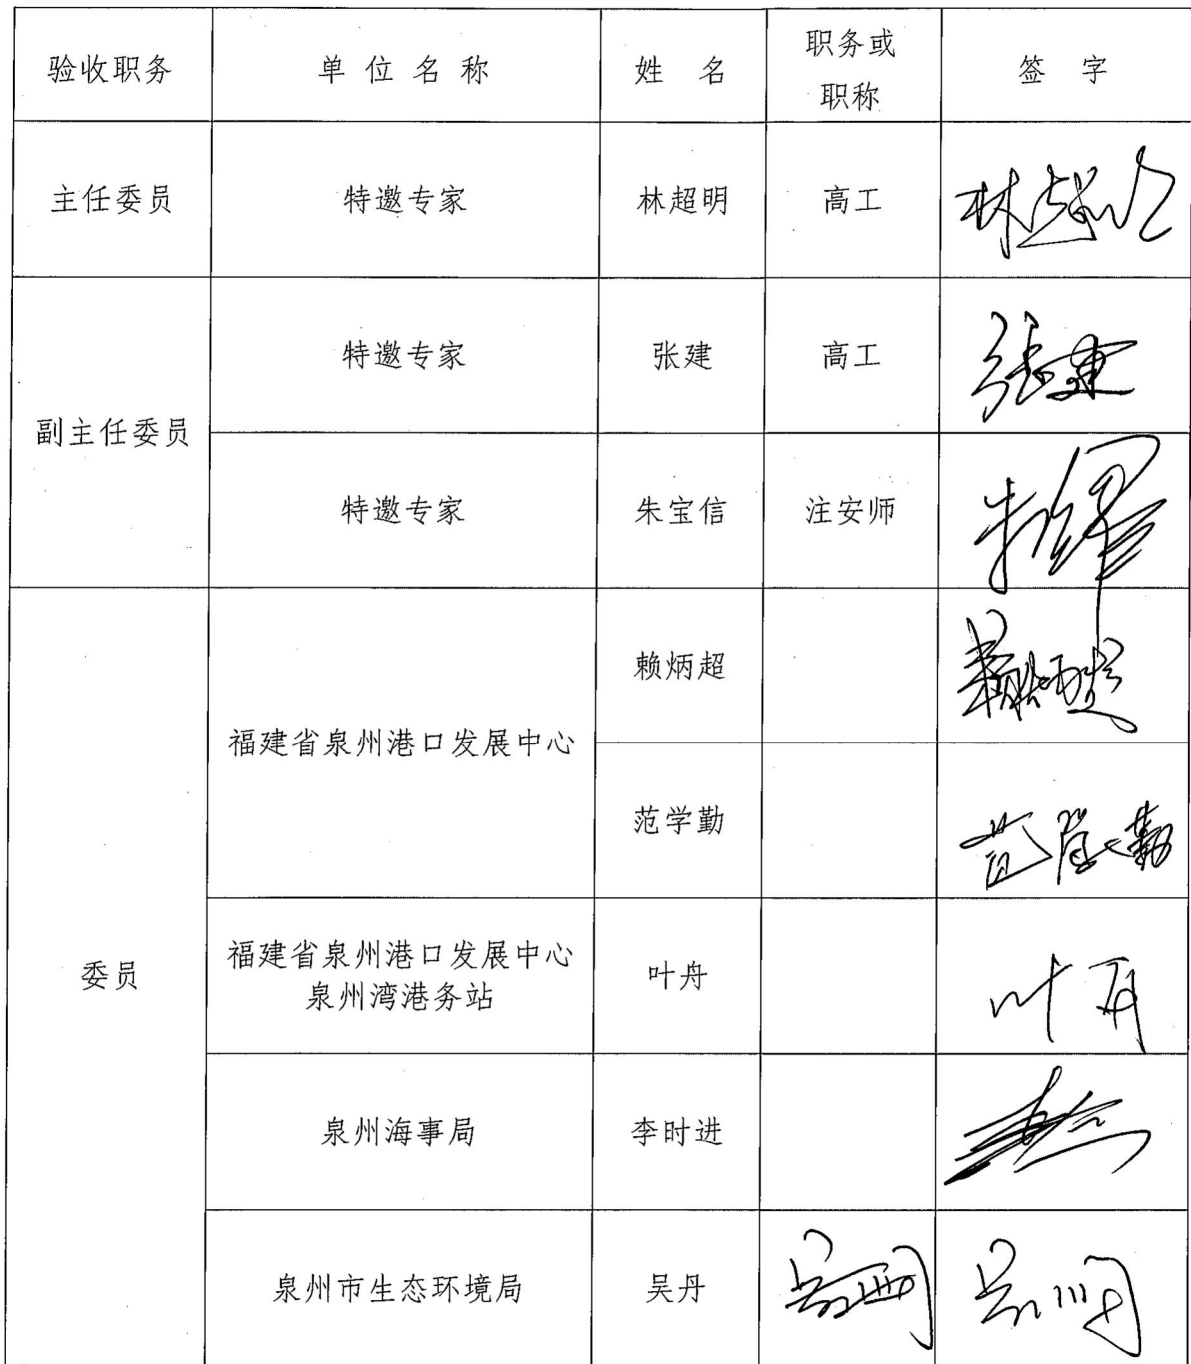 验收职务 单位名称 姓名 职务或职称 签字
主任委员 特邀专家 林超明 高工 林超明
副主任委员 特邀专家 张建 高工 张建
特邀专家 朱宝信 注安师
委员 福建省泉州港口发展中心 赖炳超 赖炳超
范学勤 范学勤
福建省泉州港口发展中心
泉州湾港务站 叶舟 叶舟
泉州海事局 李时进
泉州市生态环境局 吴丹